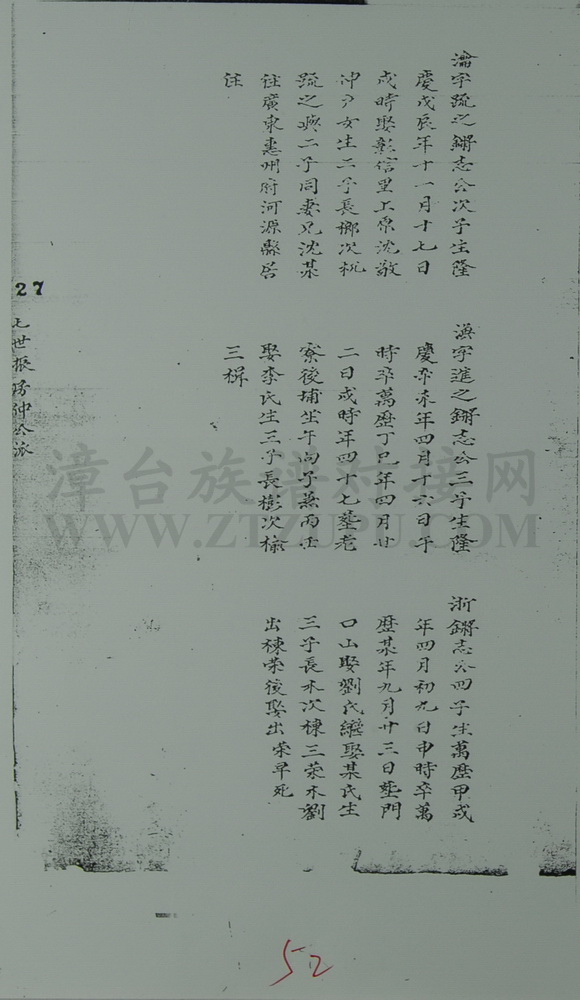 瀹字疏之鏘志公次子生隆
慶戊辰年十一月十七日
戌時娶彰信里上原沈敬
冲户女生二子長榔次杭
疏之與二子同妻兄沈某
往廣東惠州府河源縣居
住
漢字進之鏘志公三子生隆
慶辛未年四月十六日午
時卒萬歷丁巳年四月廿
二日戌時年四十七塟老
寮後埔坐午向子兼丙壬
娶李氏生三子長彬次榆
三樨
浙鏘志公四子生萬歷甲戌
年四月初九日申時卒萬
歷某年九月廿三日塟門
口山娶劉氏繼娶某氏生
三子長木次棟三荣木劉
出棟荣後娶出荣早死
27
七世振房仲公派
漳台族谱对接网
WWW.ZTZUPU.COM
52